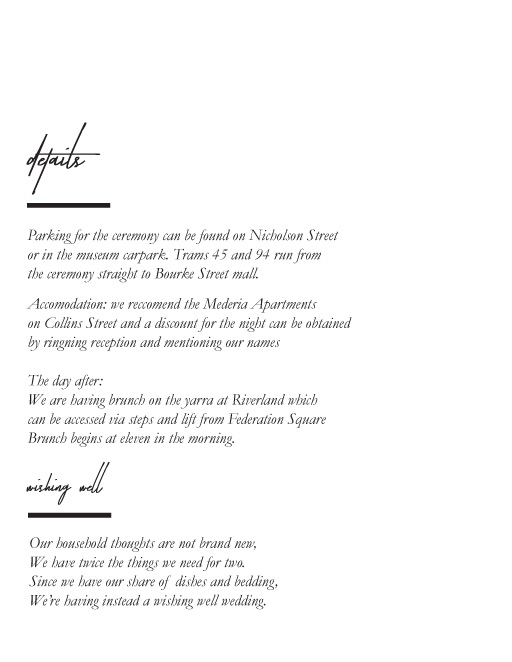 details
Parking for the ceremony can be found on Nicholson Street
or in the museum carpark. Trams 45 and 94 run from
the ceremony straight to Bourke Street mall.
Accomodation: we reccomend the Mederia Apartments
on Collins Street and a discount for the night can be obtained
by ringning reception and mentioning our names
The day after:
We are having brunch on the yarra at Riverland which
can be accessed via steps and lift from Federation Square
Brunch begins at eleven in the morning.
wishing well
Our household thoughts are not brand new,
We have twice the things we need for two.
Since we have our share of dishes and bedding,
We're having instead a wishing well wedding.